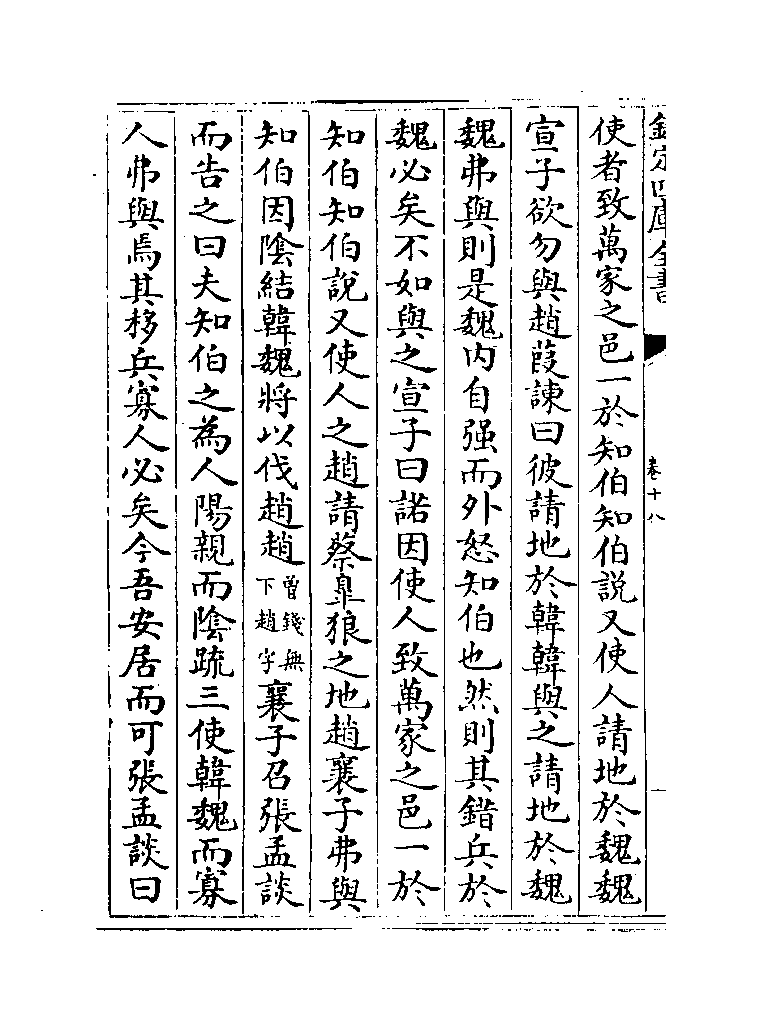 欽定四庫全書
卷十八
一
使者致萬家之邑一於知伯知伯説又使人請地於魏魏
宣子欲勿與趙葭諫曰彼請地於韓韓與之請地於魏
魏弗與則是魏内自强而外怒知伯也然則其錯兵於
魏必矣不如與之宣子曰諾因使人致萬家之邑一於
知伯知伯說又使人之趙請蔡臯狼之地趙襄子弗與
知伯因陰結韓魏將以伐趙趙曾錢無下趙字襄子召張孟談
而告之曰夫知伯之為人陽親而陰疏三使韓魏而寡
人弗與焉其移兵寡人必矣今吾安居而可張孟談曰